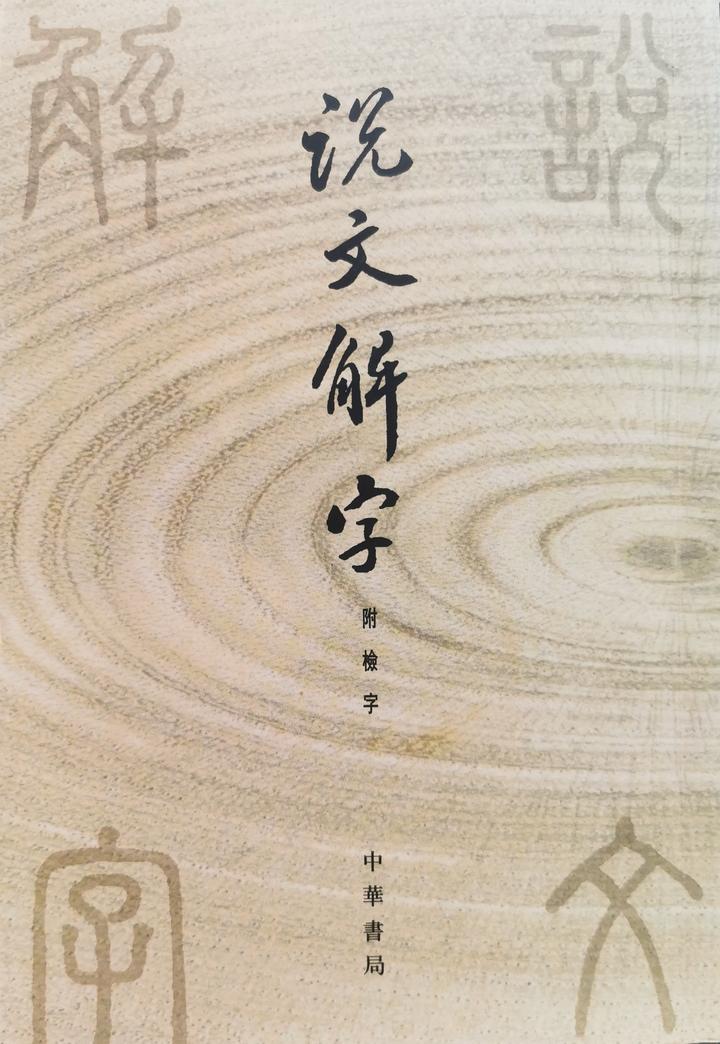 説文
解字
说文解字
附檢字
中華書局